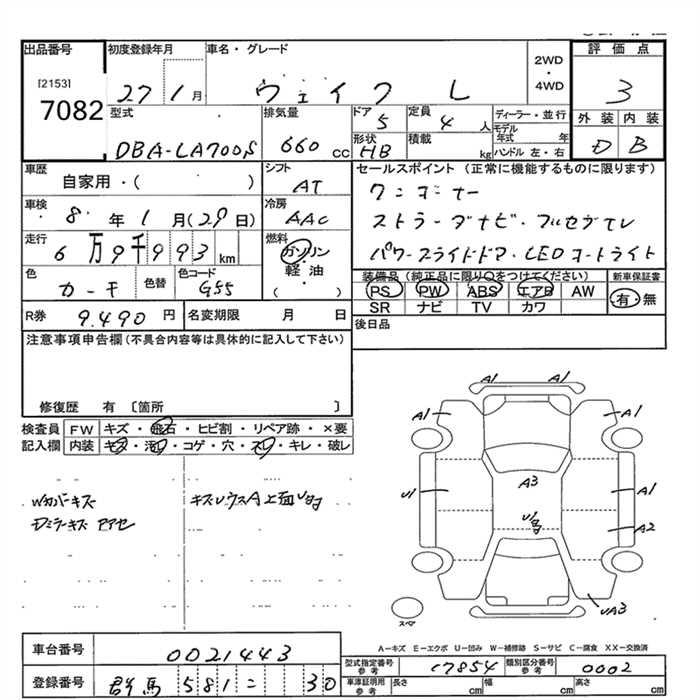 出品番号 初度登録年月 車名・グレード 2WD 評価点
[2153] 4WD
7082 27 1月 ウェイク L 3
型式 排気量 ドア 5 定員 4 人 ディーラー・並行 外装 内装
DBA-LA700S 660 CC 形状 HB 積載 kg モデル年式 年 D B
ハンドル 左・右
車歴 シフト セールスポイント（正常に機能するものに限ります）
自家用・( ) AT ワンオーナー
車検 8年 1月(29日) 冷房 AAC
走行 6万9千993km 燃料 ガソリン・軽油 ( )
パワースライドドア・LEDオートライト
色 色替 色コード G55 装備品（純正品に限り○をつけてください） 新車保証書
PS PW ABS エアB AW 有・無
SR ナビ TV カワ
R券 9.490円 名変期限 月 日 後日品
注意事項申告欄（不具合内容等は具体的に記入して下さい）
修復歴 有 〔箇所 〕
検査員 FW キズ・飛石・ヒビ割・リペア跡・×要
記入欄 内装 キズ・汚れ・コゲ・穴・スレ・キレ・破レ
A1 A1
A1 A1
A3
U1 A1
A2
UA3
スペア
A－キズ E－エクボ U－凹み W－補修跡 S－サビ C－腐食 XX－交換済
車台番号 0021443
型式指定番号 参考 17854 類別区分番号 参考 0002
登録番号 群馬 581 30
車庫証明用 参考 長さ cm 幅 cm 高さ cm